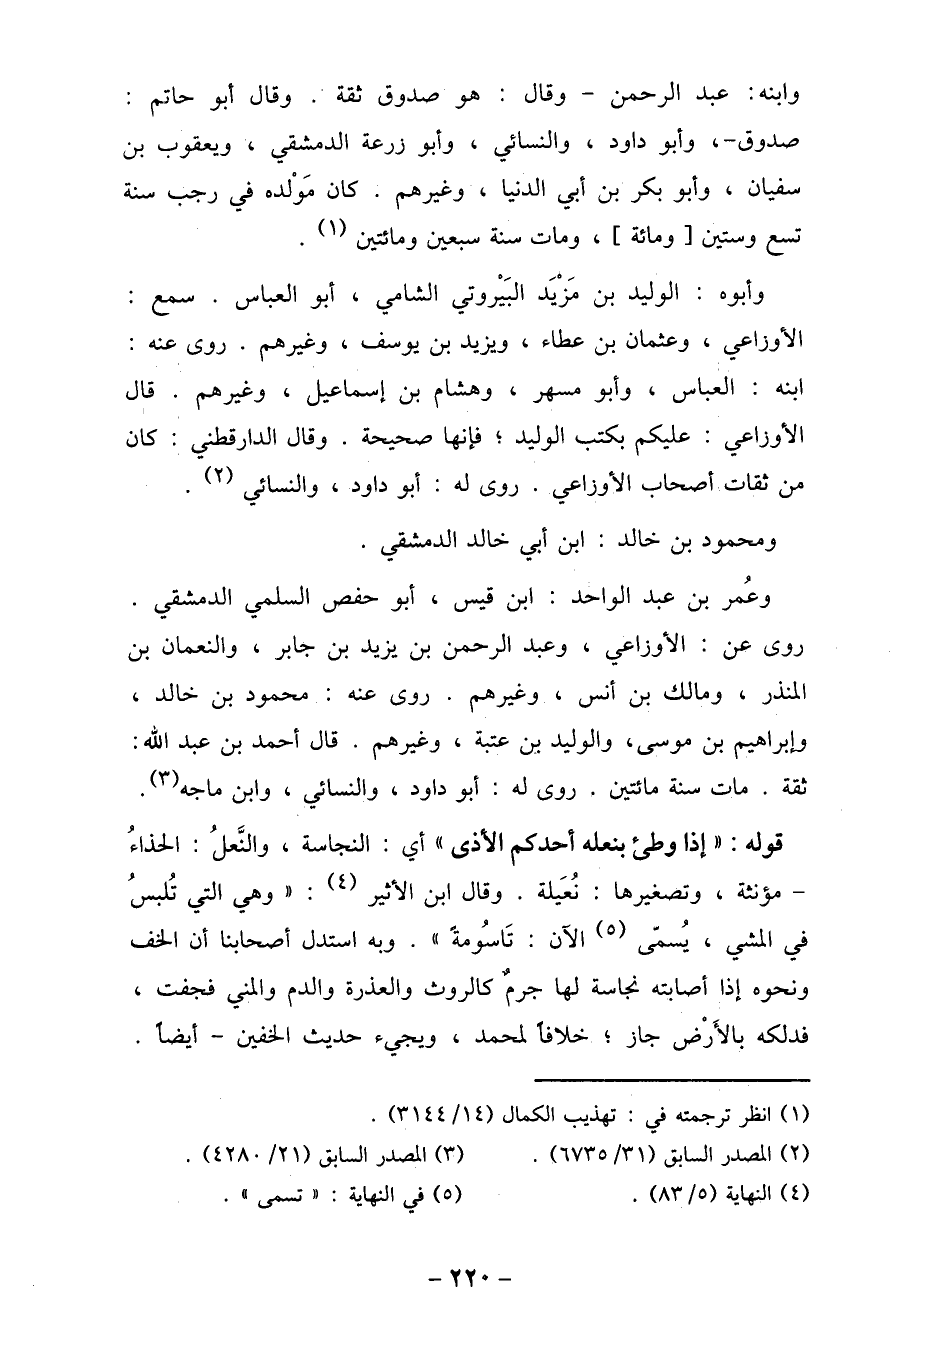 وابنه: عبد الرحمن – وقال : هو صدوق ثقة . وقال أبو حاتم :
صدوق–، وأبو داود ، والنسائي ، وأبو زرعة الدمشقي ، ويعقوب بن
سفيان ، وأبو بكر بن أبي الدنيا ، وغيرهم . كان مَوْلده في رجب سنة
تسع وستين [ ومائة ] ، ومات سنة سبعين ومائتين (١) .
وأبوه : الوليد بن مَزْيَد البَيْروتي الشامي ، أبو العباس . سمع :
الأوزاعي ، وعثمان بن عطاء ، ويزيد بن يوسف ، وغيرهم . روى عنه :
ابنه : العباس ، وأبو مسهر ، وهشام بن إسماعيل ، وغيرهم . قال
الأوزاعي : عليكم بكتب الوليد ؛ فإنها صحيحة . وقال الدارقطني : كان
من ثقات أصحاب الأوزاعي . روى له : أبو داود ، والنسائي (٢) .
ومحمود بن خالد : ابن أبي خالد الدمشقي .
وعُمر بن عبد الواحد : ابن قيس ، أبو حفص السلمي الدمشقي .
روى عن : الأوزاعي ، وعبد الرحمن بن يزيد بن جابر ، والنعمان بن
المنذر ، ومالك بن أنس ، وغيرهم . روى عنه : محمود بن خالد ،
وإبراهيم بن موسى، والوليد بن عتبة ، وغيرهم . قال أحمد بن عبد الله:
ثقة . مات سنة مائتين . روى له : أبو داود ، والنسائي ، وابن ماجه(٣).
قوله : « إذا وطئ بنعله أحدكم الأذى » أي : النجاسة ، والنَّعلُ : الحذاءُ
– مؤنثة ، وتصغيرها : نُعَيلة . وقال ابن الأثير (٤) : « وهي التي تُلبسُ
في المشي ، يُسمّى (٥) الآن : تَاسُومةً » . وبه استدل أصحابنا أن الخف
ونحوه إذا أصابته نجاسة لها جرمٌ كالروث والعذرة والدم والمني فجفت ،
فدلكه بالأَرْض جاز ؛ خلافاً لمحمد ، ويجيء حديث الخفين – أيضاً .
(١) انظر ترجمته في : تهذيب الكمال (١٤/ ٣١٤٤) .
(٢) المصدر السابق (٣١/ ٦٧٣٥) . (٣) المصدر السابق (٢١/ ٤٢٨٠) .
(٤) النهاية (٥/ ٨٣) . (٥) في النهاية : « تسمى » .
– ٢٢٠ –